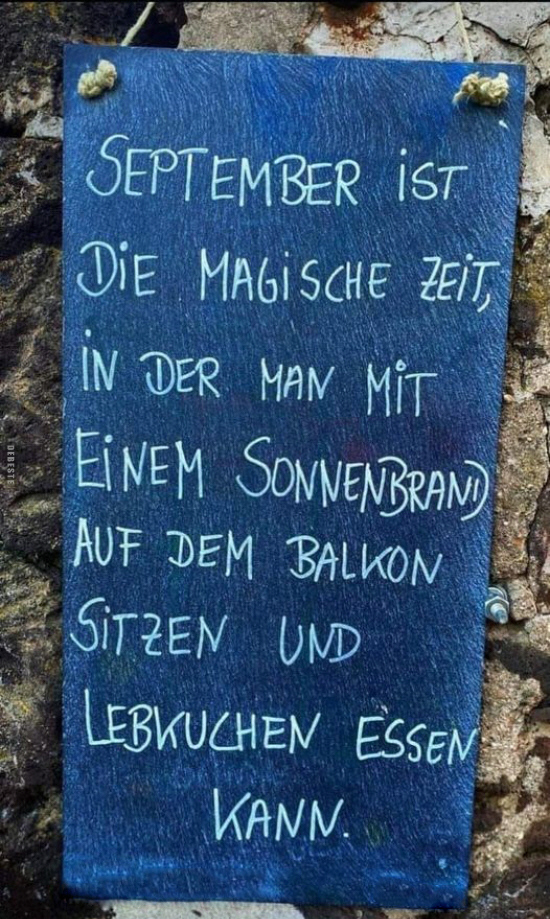 SEPTEMBER iST
DiE MAGiSCHE ZEiT,
iN DER MAN MiT
EiNEM SONNENBRAND
AUF DEM BALKON
SiTZEN UND
LEBKUCHEN ESSEN
KANN.
DEBESTE